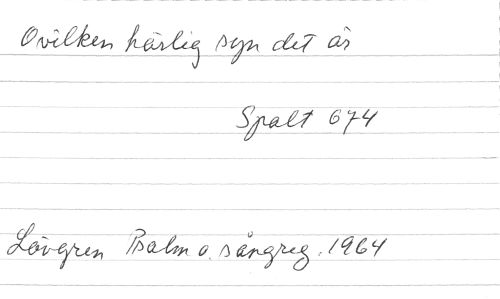 O vilken härlig syn det är
Spalt 674
Lövgren Psalm o. sångreg. 1964